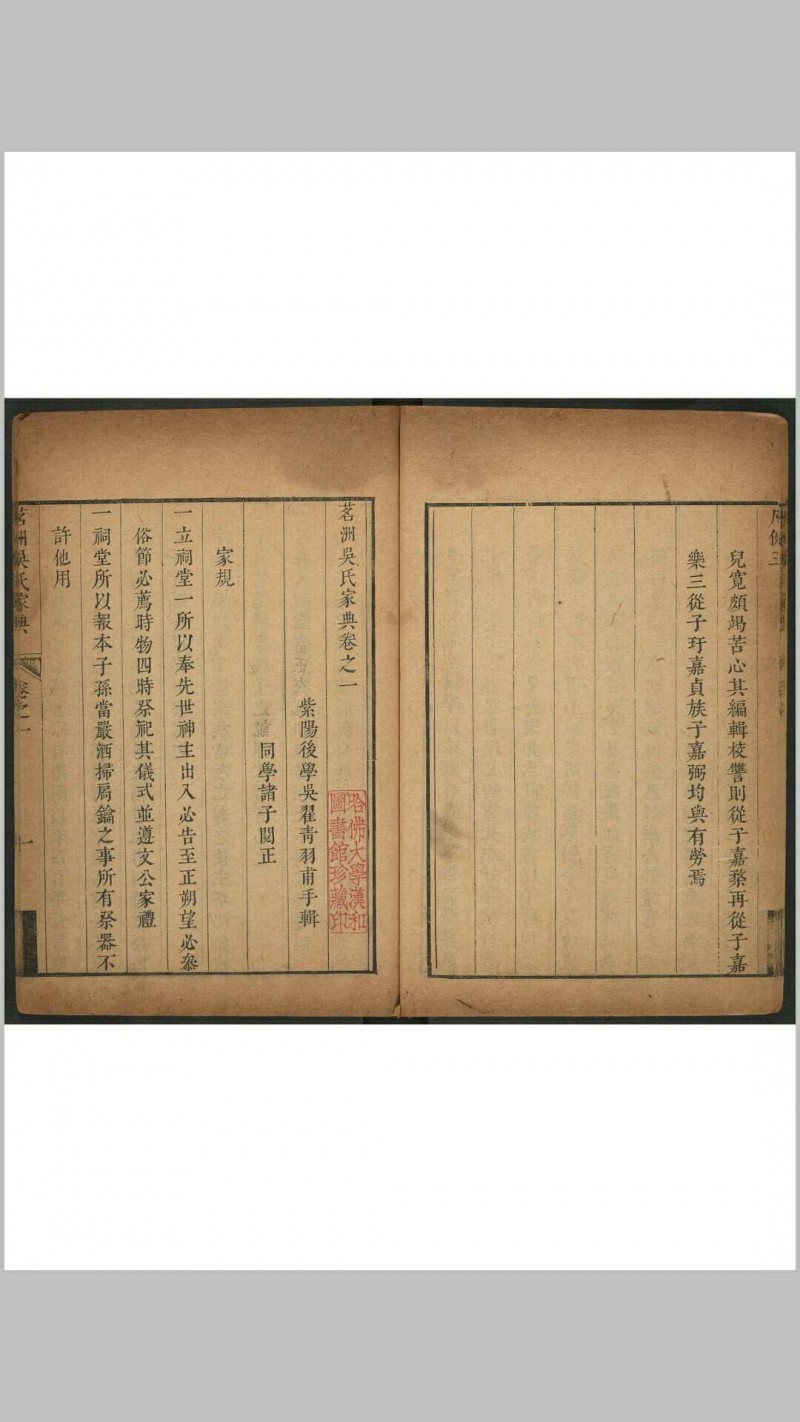 兒寬頗竭苦心其編輯校讐則從子嘉棃再從子嘉
樂三從子玗嘉貞族子嘉弼均與有勞焉
茗洲吳氏家典卷之一
紫陽後學吳翟青羽甫手輯
同學諸子閱正
哈佛大學漢和
圖書館珍藏印
家規
一立祠堂一所以奉先世神主出入必告至正朔望必叅
俗節必薦時物四時祭祀其儀式並遵文公家禮
一祠堂所以報本子孫當嚴洒掃扃鑰之事所有祭器不
許他用
茗洲吳氏家典
卷之一
一